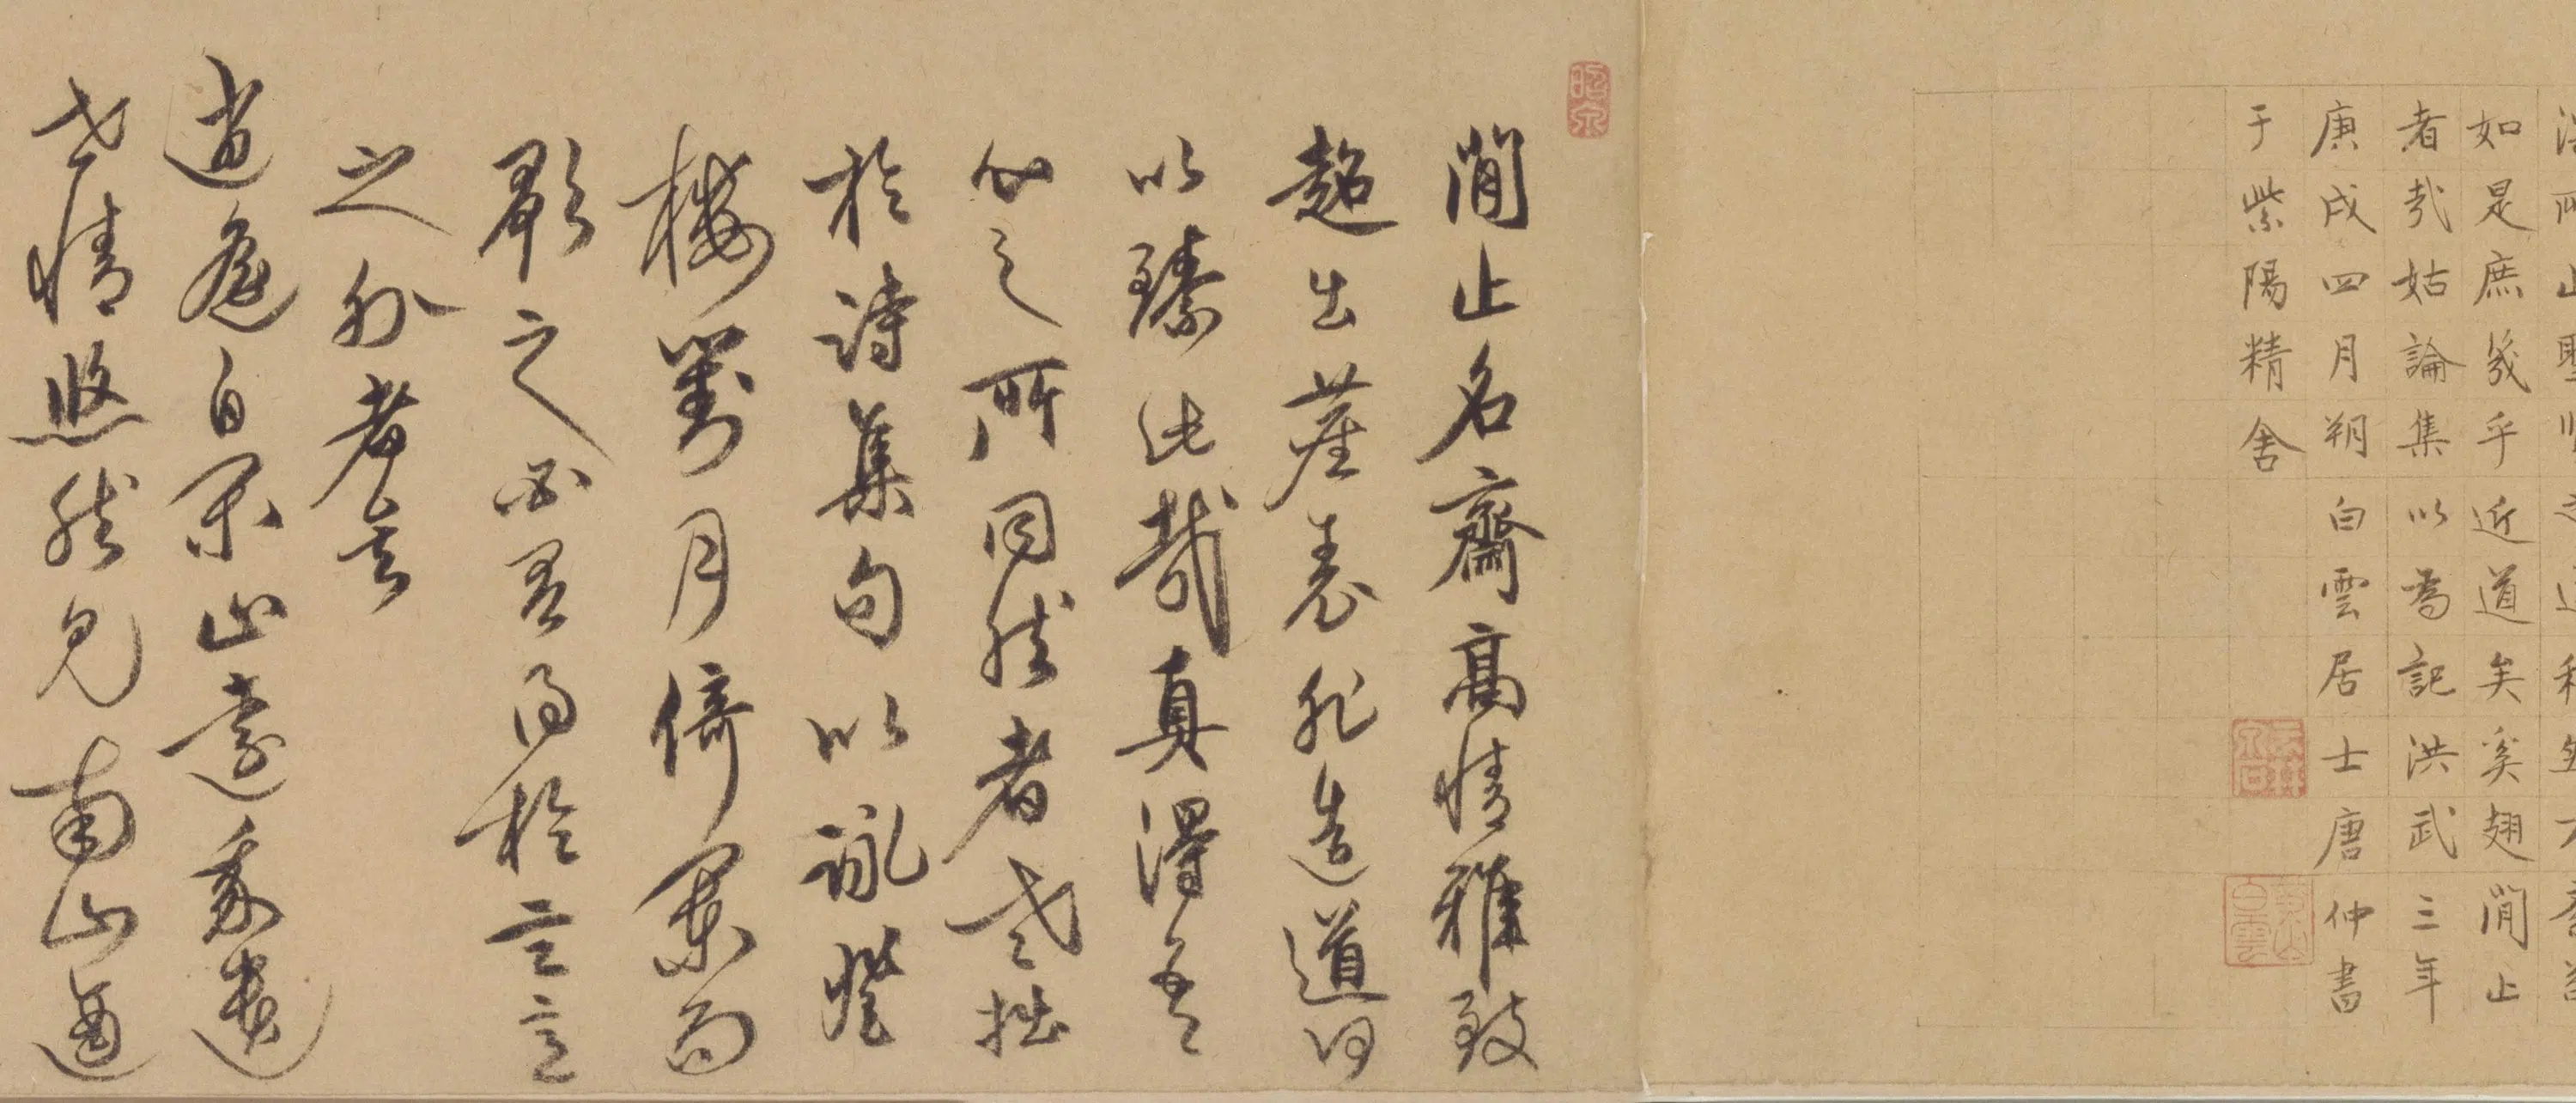 如是庶幾乎近道矣奚翅閒止
者哉姑論集以為記洪武三年
庚戌四月朔白雲居士唐仲書
于紫陽精舍
閒止名齋高情雅致
超出塵表非造道何
以臻此哉真得吾
心之所同然者老拙
於詩集句以詠登
樓對月倚闌而
歌之必有得於言意
之外者云
逍遙自閑止遠我遺
世情悠然見南山酒